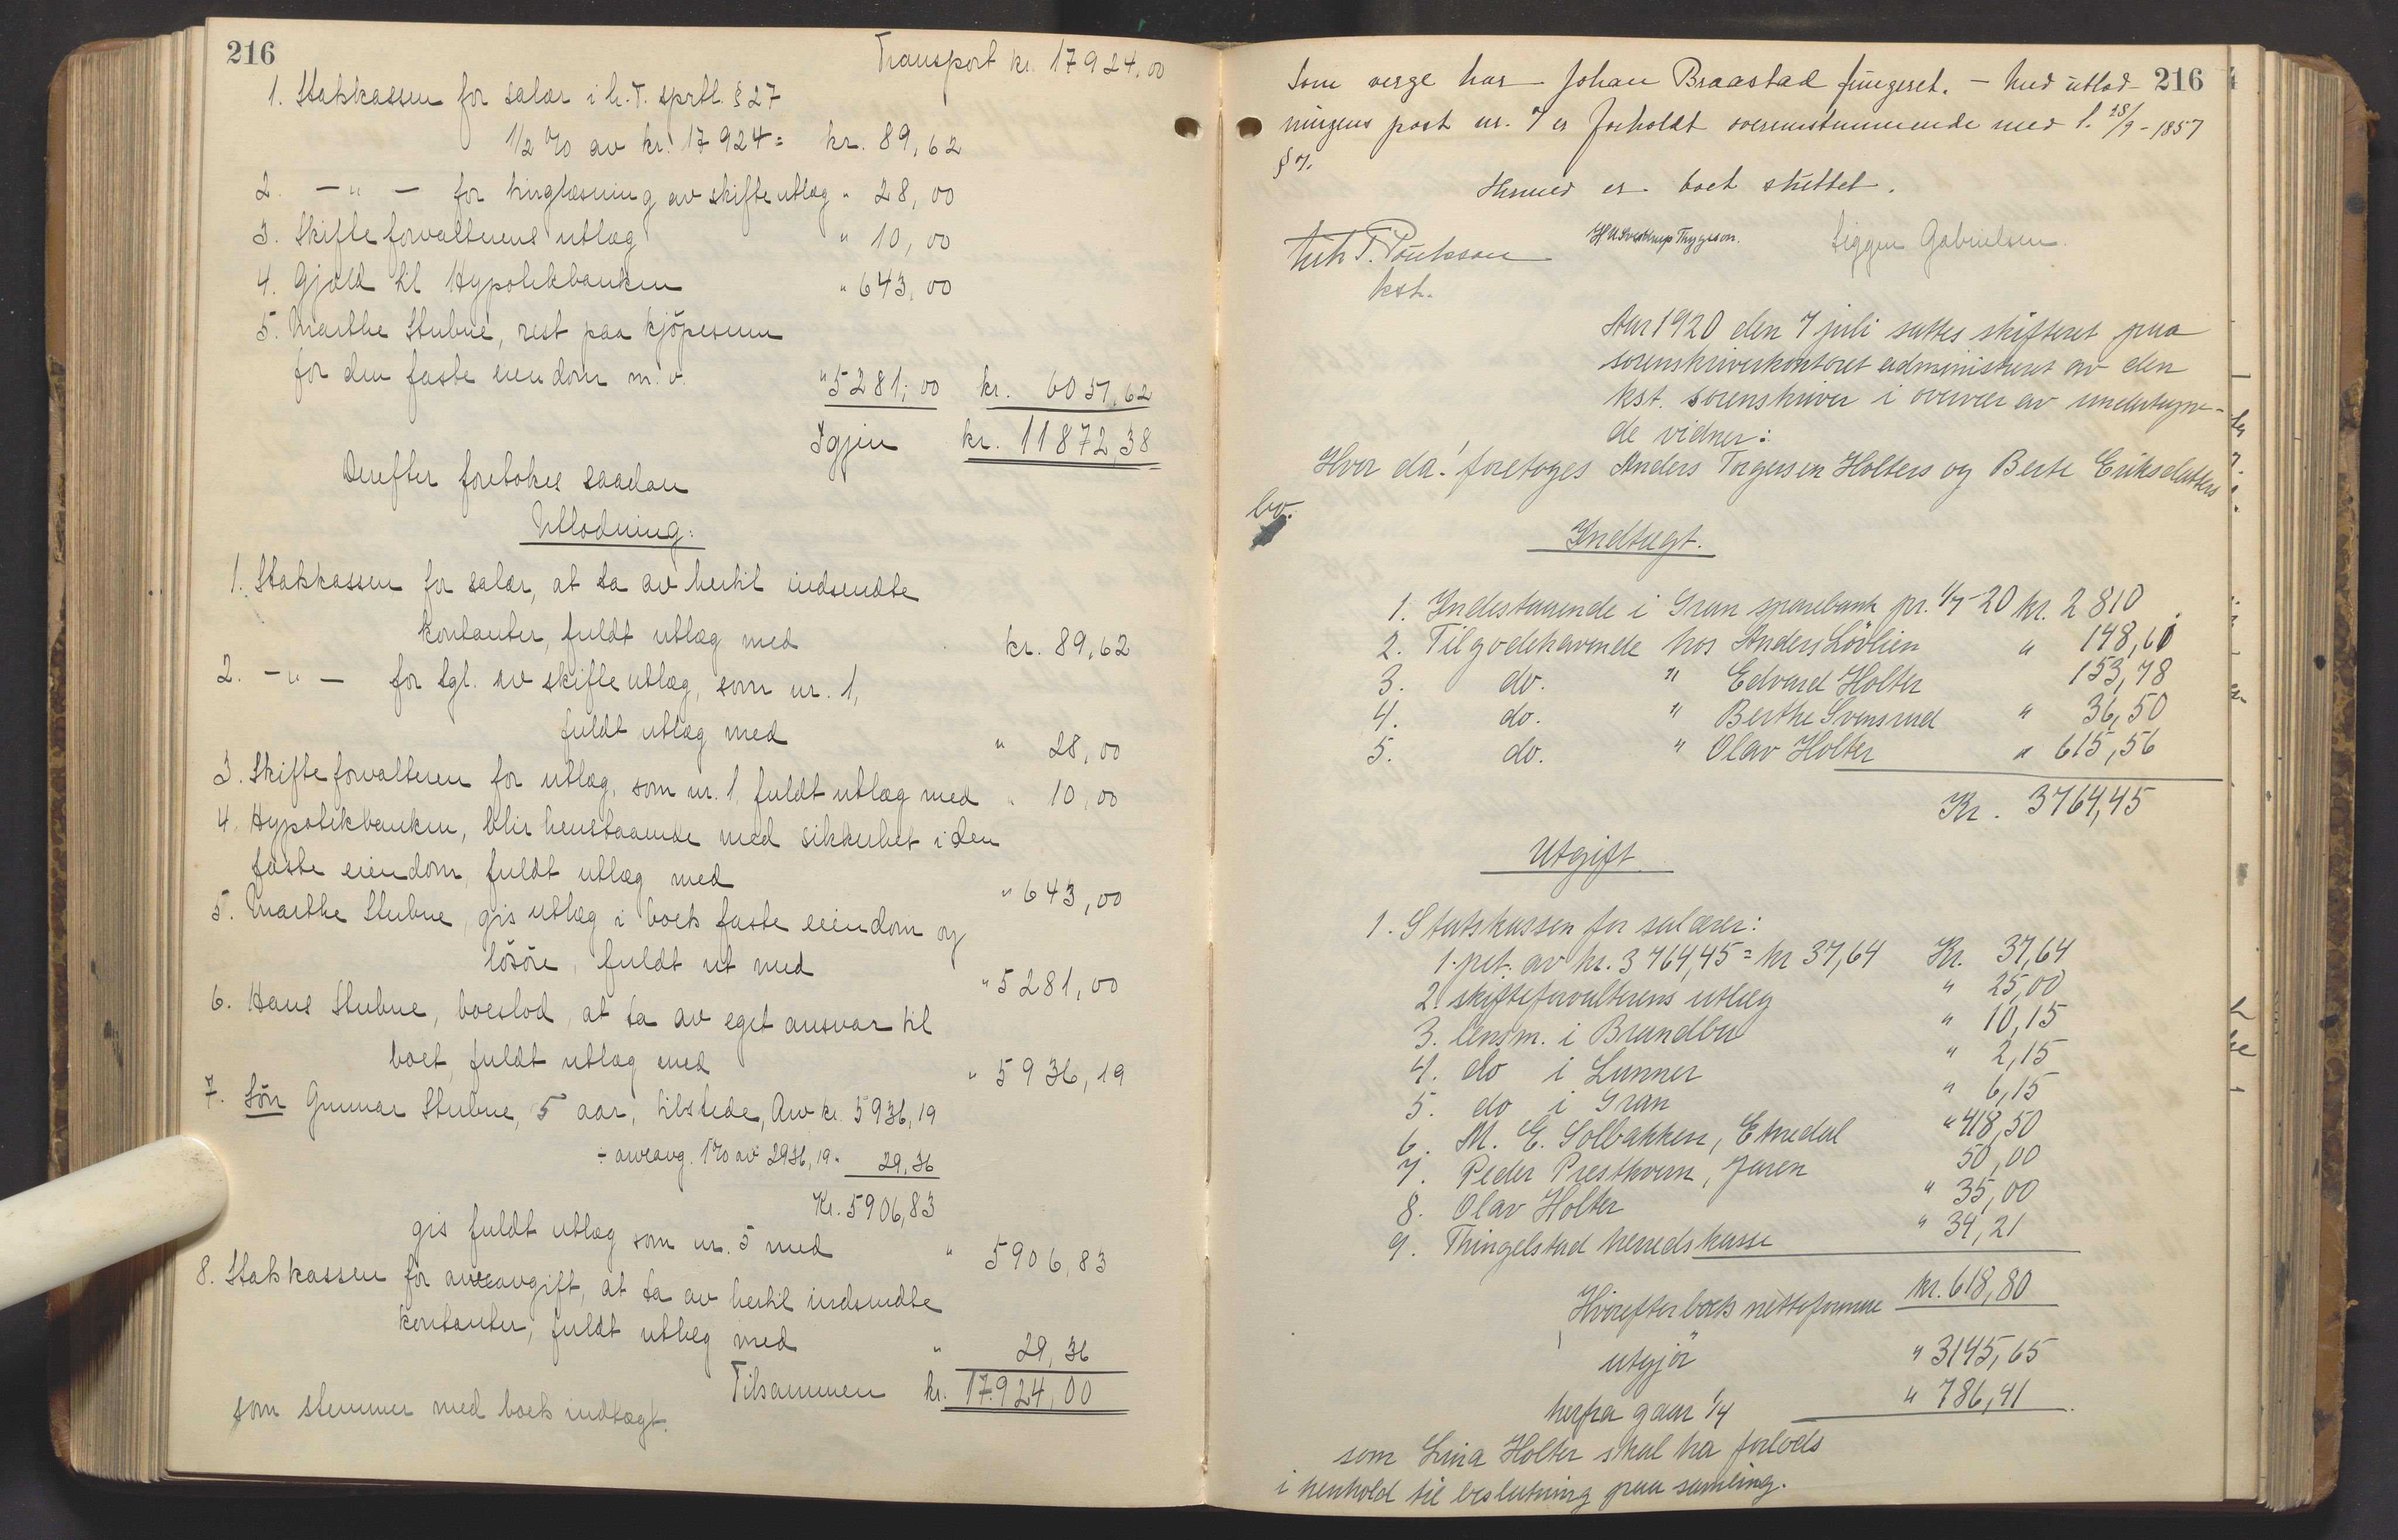 216
Transport kr. 17924,00
1. Statskassen for salær i h.t. sprtl. § 27
1/2 % av kr. 17924 = kr. 89,62
2. — " — for tinglæsning av skifteutlæg " 28,00
3. Skifteforvalterens utlæg " 10,00
4. Gjæld til Hypotekbanken " 643,00
5. Marthe Stubne, rest paa kjøpesum
for den faste eiendom m.v. " 5281,00 kr. 6051,62
Igjen kr. 11872,38
Derefter foretokes saadan
Utlodning:
1. Statskassen for salær, at ta av hertil indsendte
kontanter, fuldt utlæg med kr. 89,62
2. — " — for tgl. av skifteutlæg, som nr. 1,
fuldt utlæg med " 28,00
3. Skifteforvalteren for utlæg, som nr. 1, fuldt utlæg med " 10,00
4. Hypotekbanken, blir henstaaende med sikkerhet i den
faste eiendom, fuldt utlæg med " 643,00
5. Marthe Stubne, gis utlæg i boets faste eiendom og
løsøre, fuldt ut med " 5281,00
6. Hans Stubne, boeslod, at ta av eget ansvar til
boet, fuldt utlæg med " 5936,19
7. Søn Gunnar Stubne, 5 aar, tilstede, Arv kr. 5936,19
÷ arveavg. 1% av 2936,19 = 29,36
Kr. 5906,83
gis fuldt utlæg som nr. 5 med " 5906,83
8. Statskassen for arveavgift, at ta av hertil indsendte
kontanter, fuldt utlæg med " 29,36
Tilsammen kr. 17924,00
som stemmer med boets indtægt.
Som verge har Johan Braastad fungeret. — Med utlod- 216
ningens post nr. 7 er forholdt overensstemmende med l. 28/9 - 1857
§ 7.
Hermed er boet sluttet.
T. Poulsson H U Sverdrup Thygeson. Siggen Gabrielsen.
kst.
Aar 1920 den 7 juli sattes skifteret paa
sorenskriverkontoret administreret av den
kst. sorenskriver i overvær av undertegne-
de vidner:
Hvor da! foretoges Anders Torgersen Holters og Berte Eriksdatters
bo.
Indtægt.
1. Indestaaende i Gran sparebank pr. 1/7-20 kr. 2810
2. Tilgodehavende hos Anders Lövlien " 148,61
3. do. " Edvard Holter 153,78
4. do. " Berthe Svensrud " 36,50
5. do. " Olav Holter " 615,56
Kr. 3764,45
Utgift.
1. Statskassen for salærer:
1 pct. av kr. 3764,45 = kr 37,64 Kr. 37,64
2. skifteforvalterens utlæg " 25,00
3. lensm. i Brandbu " 10,15
4. do i Lunner " 2,15
5. do i Gran " 6,15
6. M. E. Solbakken, Etnedal " 418,50
7. Peder Prestkvern, Jaren 50,00
8. Olav Holter " 35,00
9. Thingelstad herredskasse " 34,21
kr. 618,80
Hvorefter boets nettoformue
utgjör " 3145,65
herfra gaar 1/4 " 786,41
som Lina Holter skal ha forlods
i henhold til beslutning paa samling.